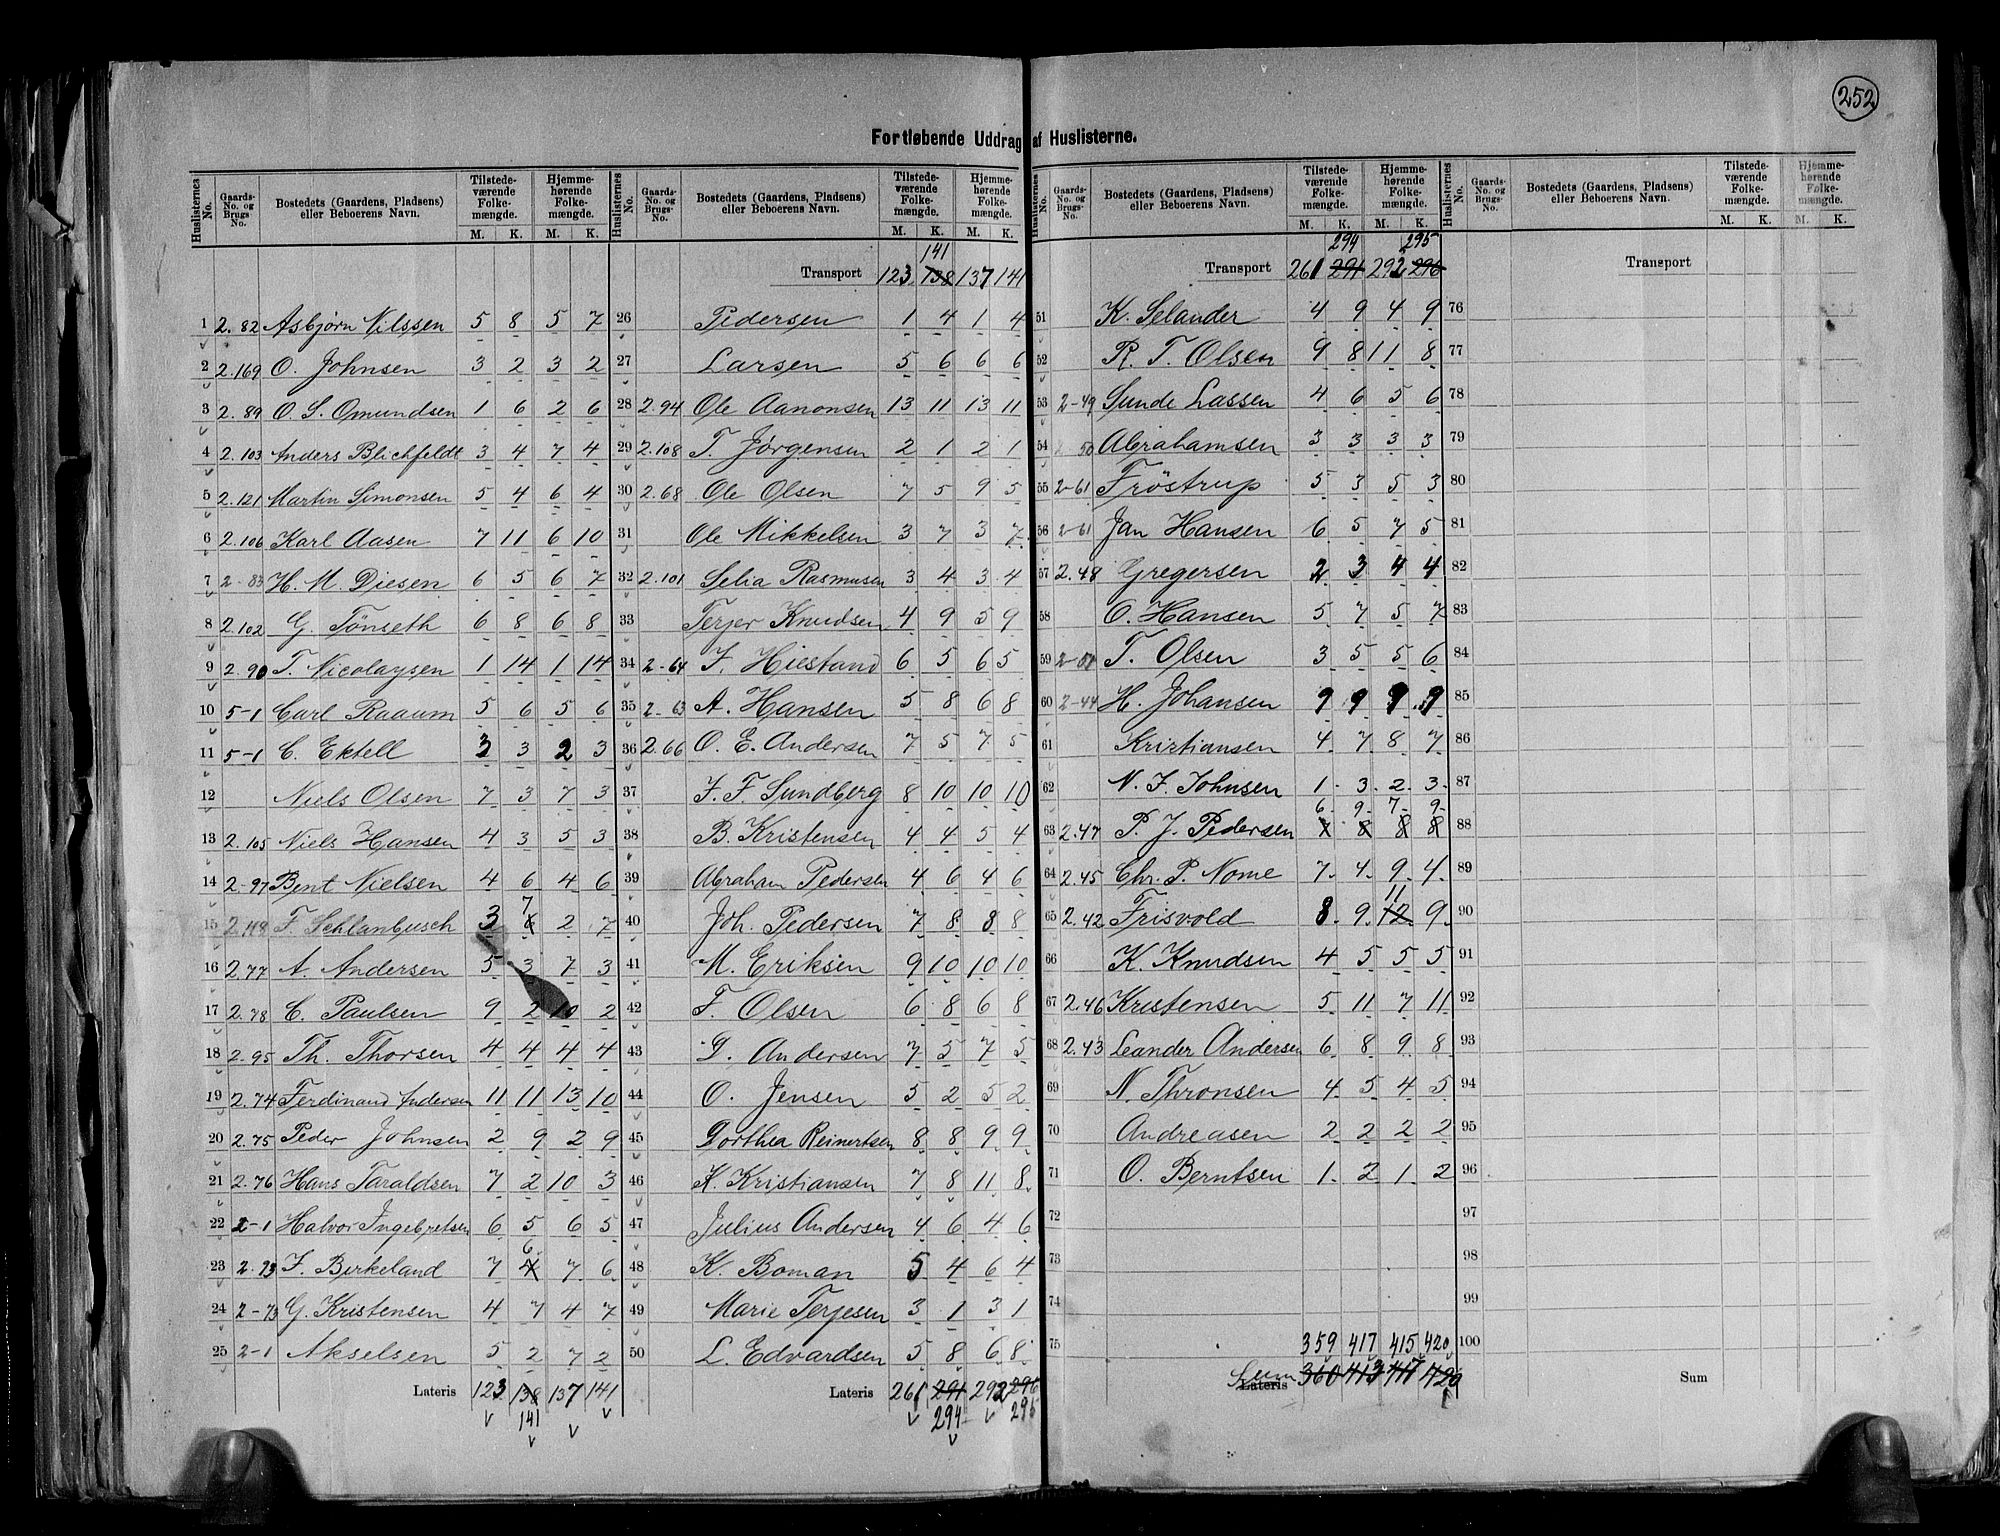 252
Fortløbende Uddrag af Huslisterne.
Huslisternes No. | Gaards-No. og Brugs-No. | Bostedets (Gaardens, Pladsens) eller Beboerens Navn. | Tilstede-værende Folke-mængde. M. K. | Hjemme-hørende Folke-mængde. M. K.
1 2.82 Asbjørn Nilssen 5 8 5 7
2 2.169 O. Johnsen 3 2 3 2
3 2.89 O. S. Omundsen 1 6 2 6
4 2.103 Anders Blichfeldt 3 4 7 4
5 2.121 Martin Simonsen 5 4 6 4
6 2.106 Karl Aasen 7 11 6 10
7 2-83 H. M. Diesen 6 5 6 7
8 2.102 G. Tönseth 6 8 6 8
9 2.90 T. Nicolaysen 1 14 1 14
10 5-1 Carl Raaum 5 6 5 6
11 5-1 C. Ektell 3 3 2 3
12 Niels Olsen 7 3 7 3
13 2.105 Niels Hansen 4 3 5 3
14 2-97 Bent Nielsen 4 6 4 6
15 F. Schlanbusch 3 7 2 7
16 2.77 A. Andersen 5 3 7 3
17 2.78 C. Paulsen 9 2 10 2
18 2.95 Th. Thorsen 4 4 4 4
19 2.74 Ferdinand Andersen 11 11 13 10
20 2.75 Peder Johnsen 2 9 2 9
21 2.76 Hans Taraldsen 7 2 10 3
22 2-1 Halvor Ingebretsen 6 5 6 5
23 2.93 F. Birkeland 7 6 7 6
24 2-73 G. Kristensen 4 7 4 7
25 2-1 Akselsen 5 2 7 2
Lateris 123 138 137 141
141
Huslisternes No. | Gaards-No. og Brugs-No. | Bostedets (Gaardens, Pladsens) eller Beboerens Navn. | Tilstede-værende Folke-mængde. M. K. | Hjemme-hørende Folke-mængde. M. K.
141
Transport 123 138 137 141
26 Pedersen 1 4 1 4
27 Larsen 5 6 6 6
28 2.94 Ole Aanonsen 13 11 13 11
29 2.108 T. Jørgensen 2 1 2 1
30 2.68 Ole Olsen 7 5 9 5
31 Ole Mikkelsen 3 7 3 7
32 2.101 Selia Rasmusen 3 4 3 4
33 Terjer Knudsen 4 9 5 9
34 2-64 F. Hiestand 6 5 6 5
35 2-63 A. Hansen 5 8 6 8
36 2.66 O. E. Andersen 7 5 7 5
37 J. F. Sundberg 8 10 10 10
38 B. Kristensen 4 4 5 4
39 Abraham Pedersen 4 6 4 6
40 Joh. Pedersen 7 8 8 8
41 M. Eriksen 9 10 10 10
42 F. Olsen 6 8 6 8
43 D. Andersen 7 5 7 5
44 O. Jensen 5 2 5 2
45 Dorthea Reinertsen 8 8 9 9
46 K. Kristiansen 7 8 11 8
47 Julius Andersen 4 6 4 6
48 K. Boman 5 4 6 4
49 Marie Terjesen 3 1 3 1
50 L. Edvardsen 5 8 6 8
Lateris 261 291 292 296
294 295
Huslisternes No. | Gaards-No. og Brugs-No. | Bostedets (Gaardens, Pladsens) eller Beboerens Navn. | Tilstede-værende Folke-mængde. M. K. | Hjemme-hørende Folke-mængde. M. K.
294 295
Transport 261 291 292 296
51 K. Selander 4 9 4 9
52 R. T. Olsen 9 8 11 8
53 2-49 Sunde Lassen 4 6 5 6
54 50 Abrahamsen 3 3 3 3
55 2-61 Fröstrup 5 3 5 3
56 2-61 Jan Hansen 6 5 7 5
57 2.48 Gregersen 2 3 4 4
58 O. Hansen 5 7 5 7
59 T. Olsen 3 5 5 6
60 2-44 H. Johansen 9 9 9 9
61 Kristiansen 4 7 8 7
62 N. J. Johnsen 1 3 2 3
6 9 7 9
63 2.47 P. J. Pedersen 7 8 8 8
64 2.45 Chr. P. Nome 7 4 9 4
11
65 2.42 Frisvold 8 9 12 9
66 K. Knudsen 4 5 5 5
67 2.46 Kristensen 5 11 7 11
68 2.43 Leander Andersen 6 8 9 8
69 N. Thronsen 4 5 4 5
70 Andreasen 2 2 2 2
71 O. Berntsen 1 2 1 2
72
73
74
75 359 417 415 420
Lateris Sum 360 413 417 420
Huslisternes No. | Gaards-No. og Brugs-No. | Bostedets (Gaardens, Pladsens) eller Beboerens Navn. | Tilstede-værende Folke-mængde. M. K. | Hjemme-hørende Folke-mængde. M. K.
Transport
76
77
78
79
80
81
82
83
84
85
86
87
88
89
90
91
92
93
94
95
96
97
98
99
100
Sum